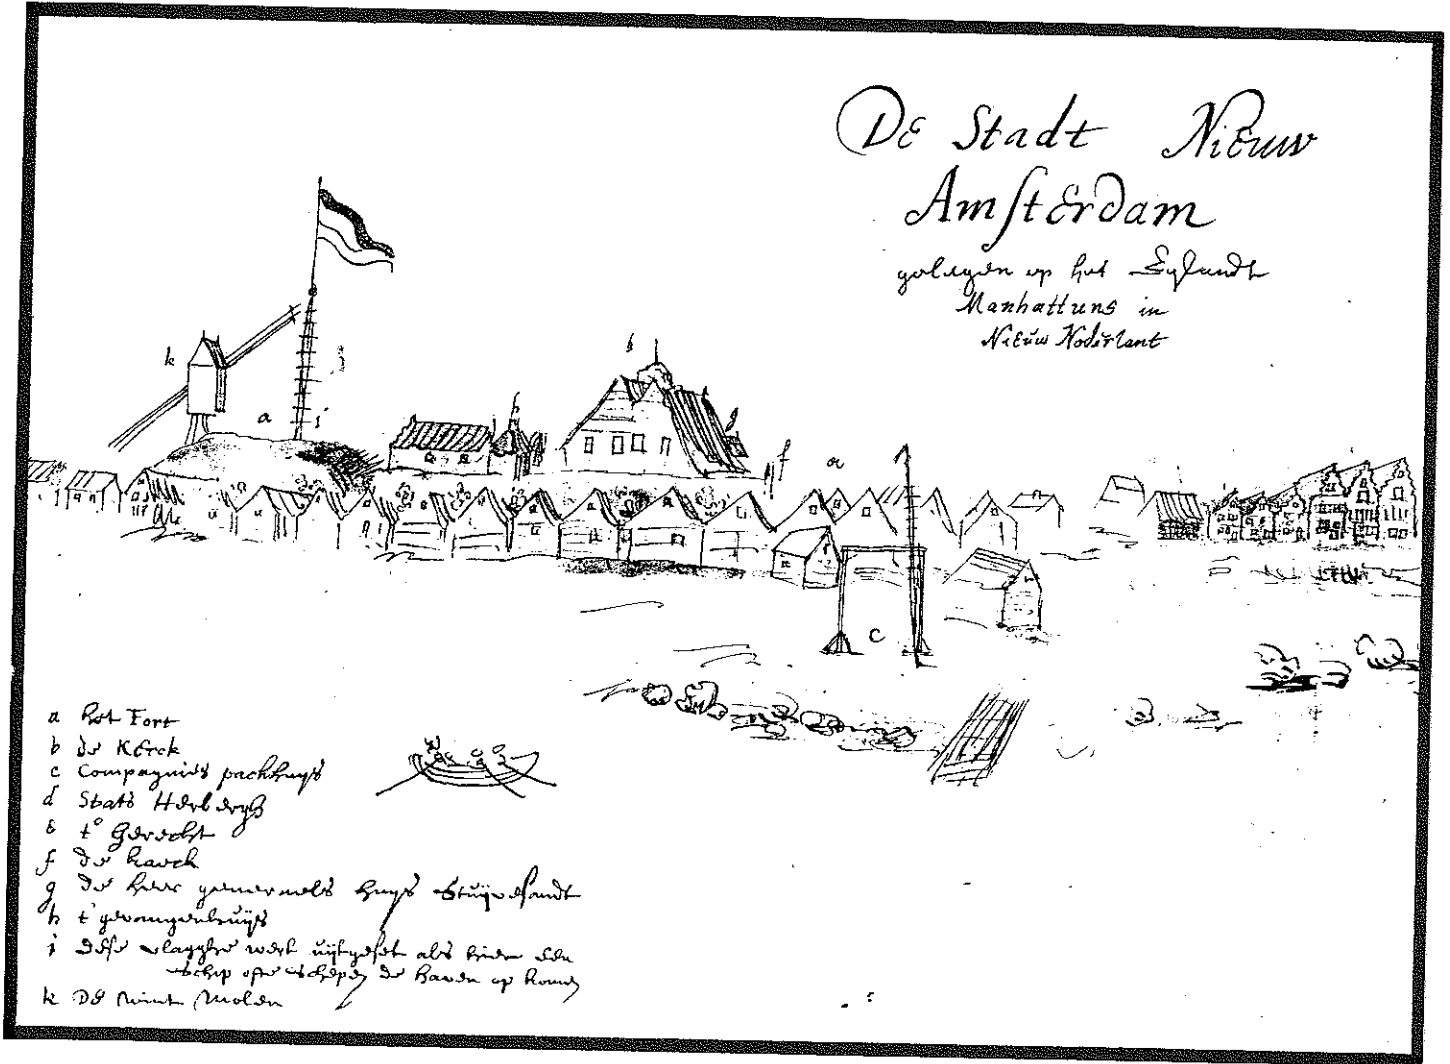 De Stadt Nieuw
Amsterdam
gelegen op het Eylandt
Manhattans in
Nieuw Nederlant
k
b
i
a
h
g
f
a
c
a het Fort
b de Kerck
c Compagnies pachhuys
d Stats Herbergh
e t' Gerecht
f de kaeck
g de heer generaels huys Stuijvesandt
h t' gevangenhuijs
i dese vlagghe wert uijtgeset als hier een
schip ofte schepen de haven op komen
k De wint Molen